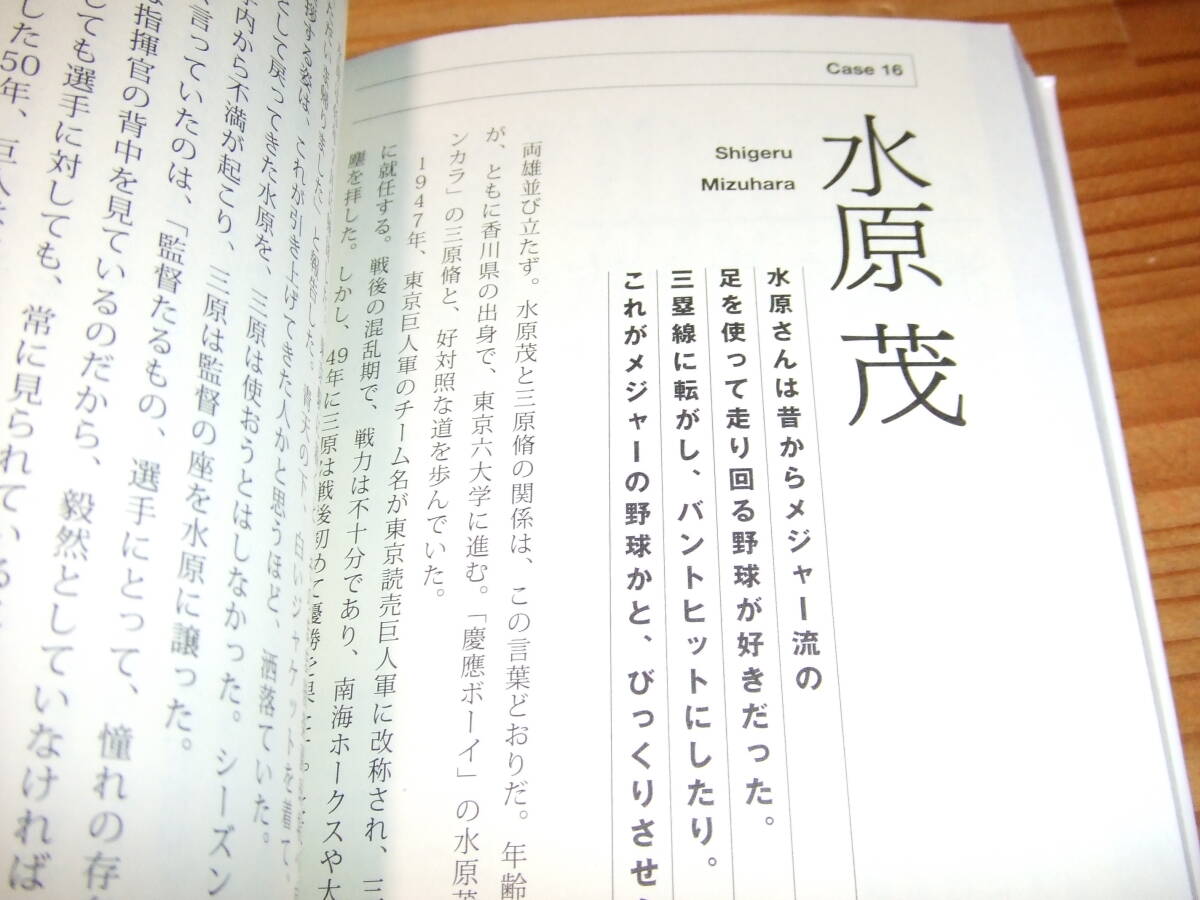 Case 16
水原 茂
Shigeru
Mizuhara
水原さんは昔からメジャー流の
足を使って走り回る野球が好きだった。
三塁線に転がし、バントヒットにしたり。
これがメジャーの野球かと、びっくりさせ
両雄並び立たず。水原茂と三原脩の関係は、この言葉どおりだ。年齢
が、ともに香川県の出身で、東京六大学に進む。「慶應ボーイ」の水原茂
ンカラ」の三原脩と、好対照な道を歩んでいた。
1947年、東京巨人軍のチーム名が東京読売巨人軍に改称され、三
に就任する。戦後の混乱期で、戦力は不十分であり、南海ホークスや大
塵を拝した。しかし、49年に三原は戦後初めて優勝を果た
と報告した。青天の下、白いジャケットを着て、
揮する姿は、これが引き上げてきた人かと思うほど、洒落ていた。
として戻ってきた水原を、三原は使おうとはしなかった。シーズン
内から不満が起こり、三原は監督の座を水原に譲った。
言っていたのは、「監督たるもの、選手にとって、憧れの存
は指揮官の背中を見ているのだから、毅然としていなければ
しても選手に対しても、常に見られている
した50年、巨人